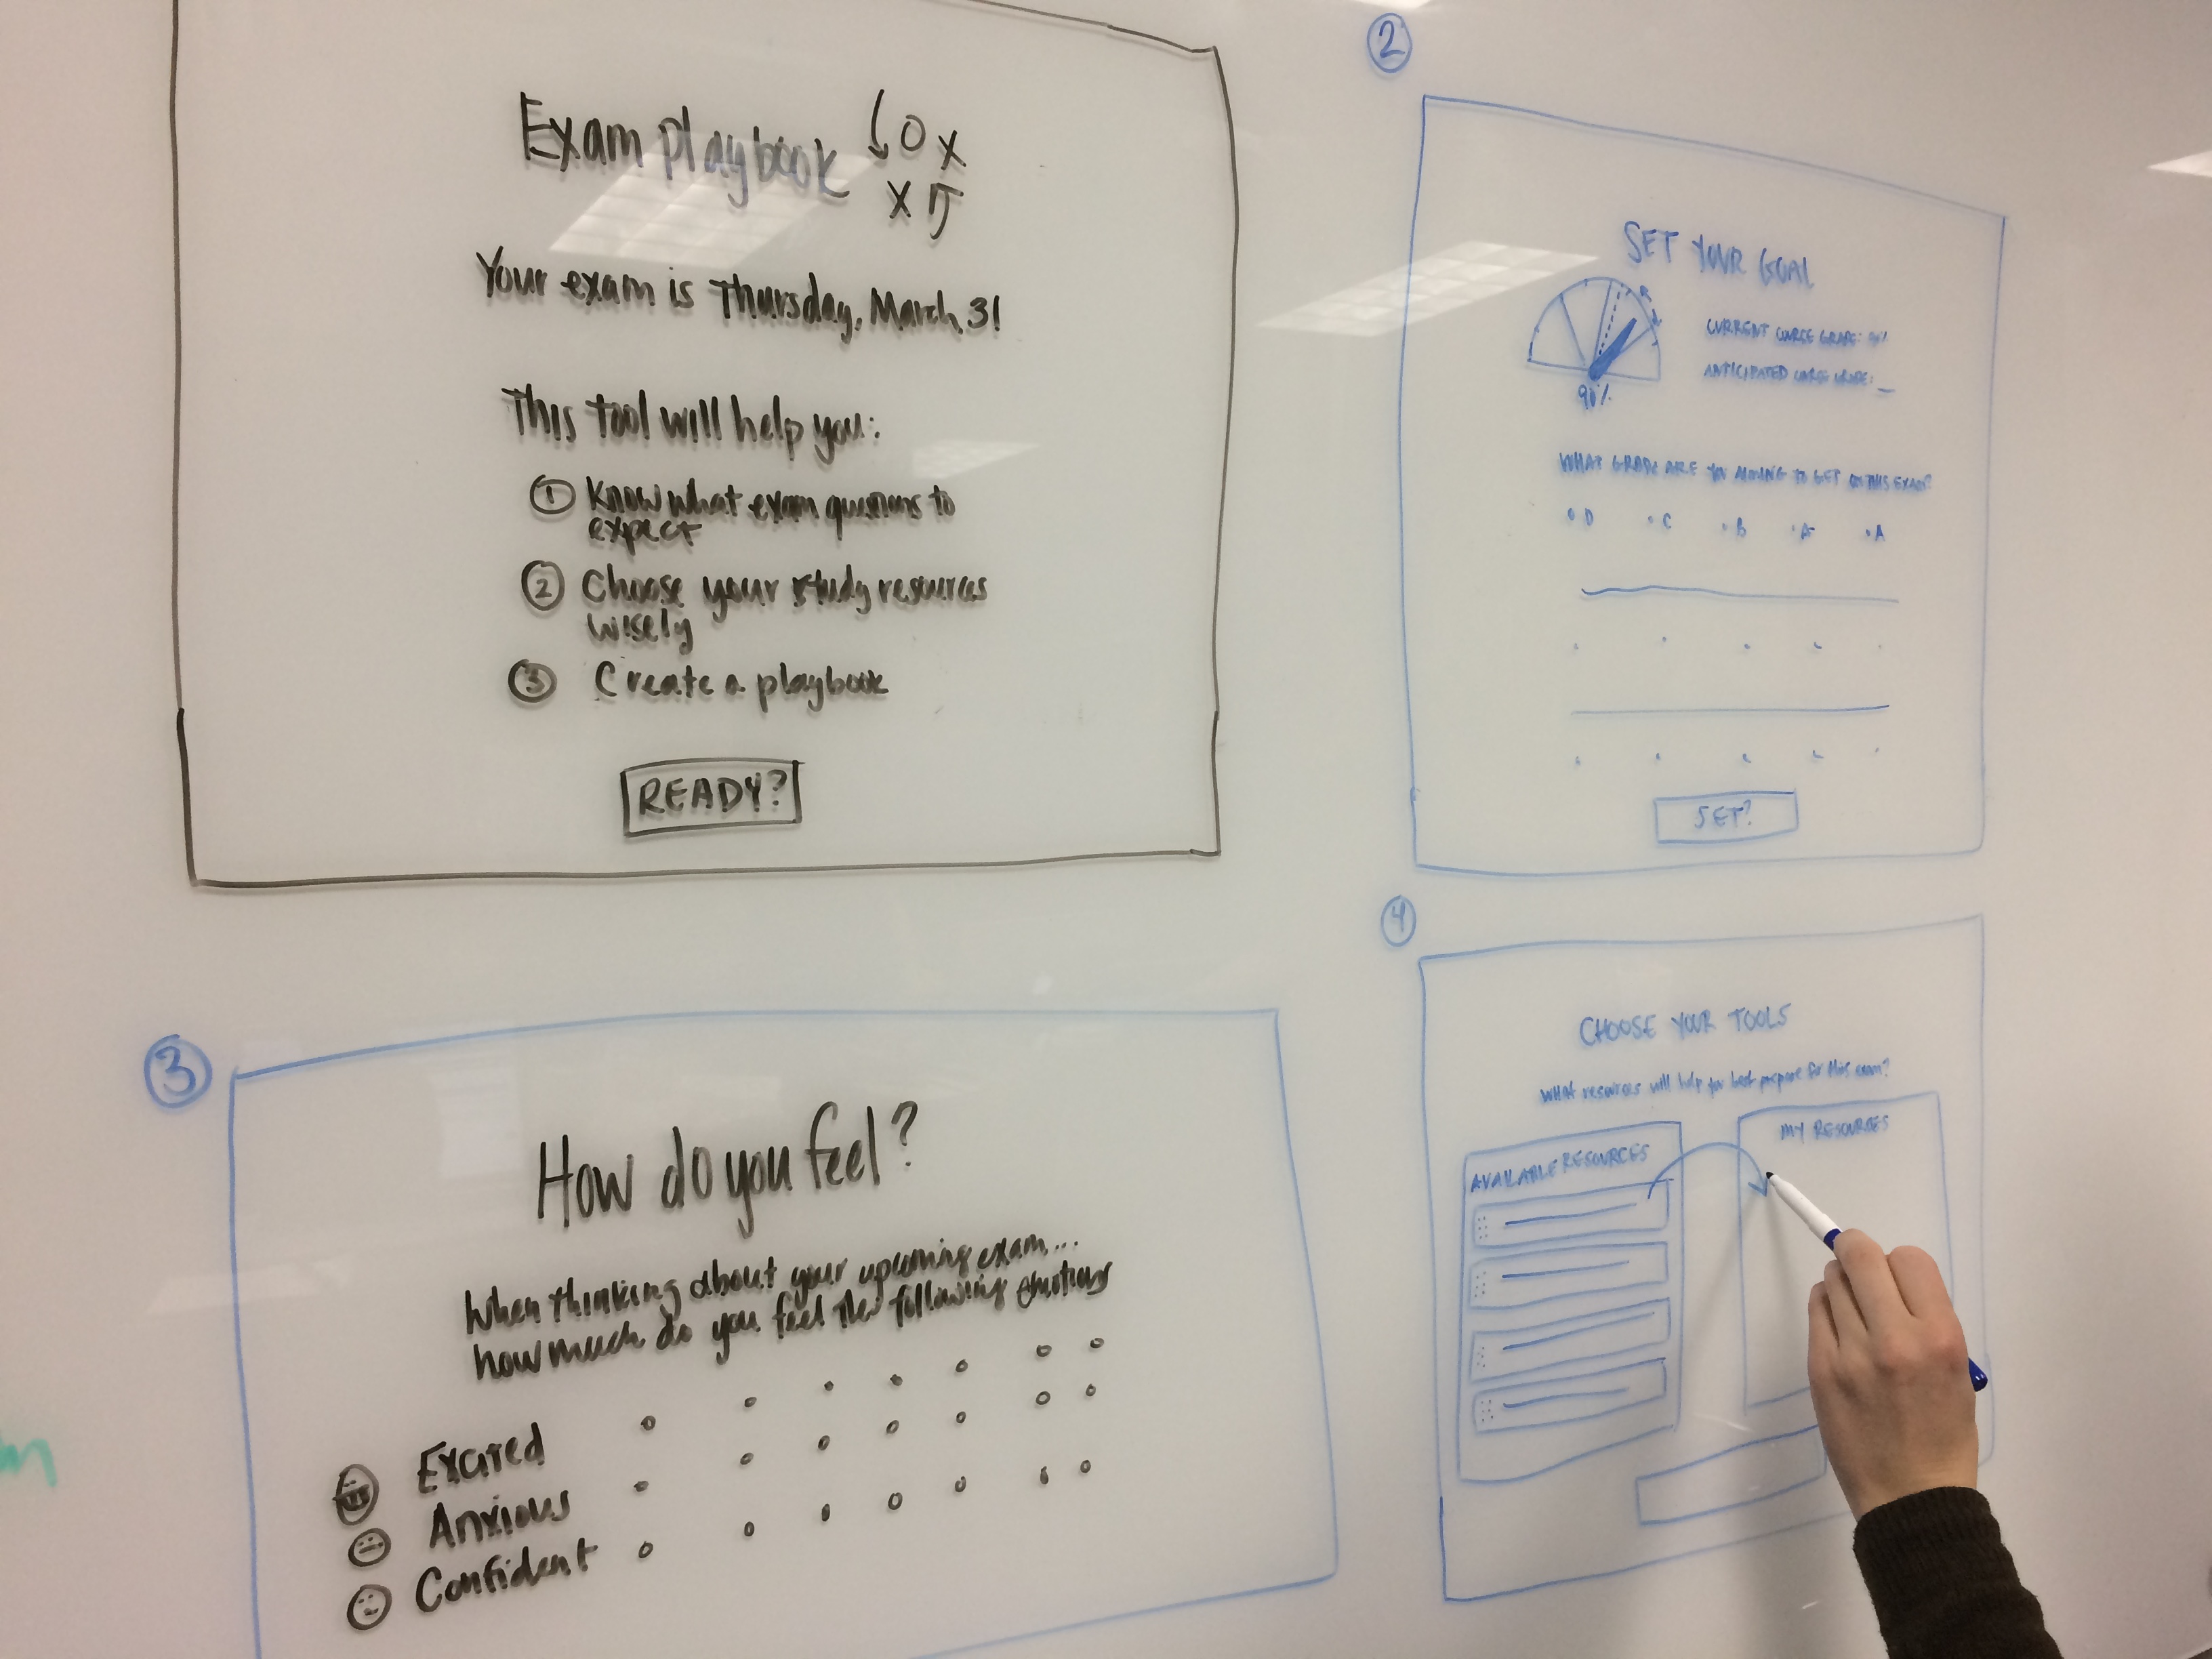 Exam playbook
Your exam is Thursday, March 31
This tool will help you:
① Know what exam questions to
expect
② Choose your study resources
wisely
③ Create a playbook
READY?
②
SET YOUR GOAL
CURRENT COURSE GRADE:
ANTICIPATED COURSE GRADE: __
90%
WHAT GRADE ARE YOU AIMING TO GET ON THIS EXAM?
D C B A- A
SET?
③
How do you feel?
When thinking about your upcoming exam...
how much do you feel the following emotions
Excited
Anxious
Confident
④
CHOOSE YOUR TOOLS
What resources will help you best prepare for this exam?
AVAILABLE RESOURCES
MY RESOURCES